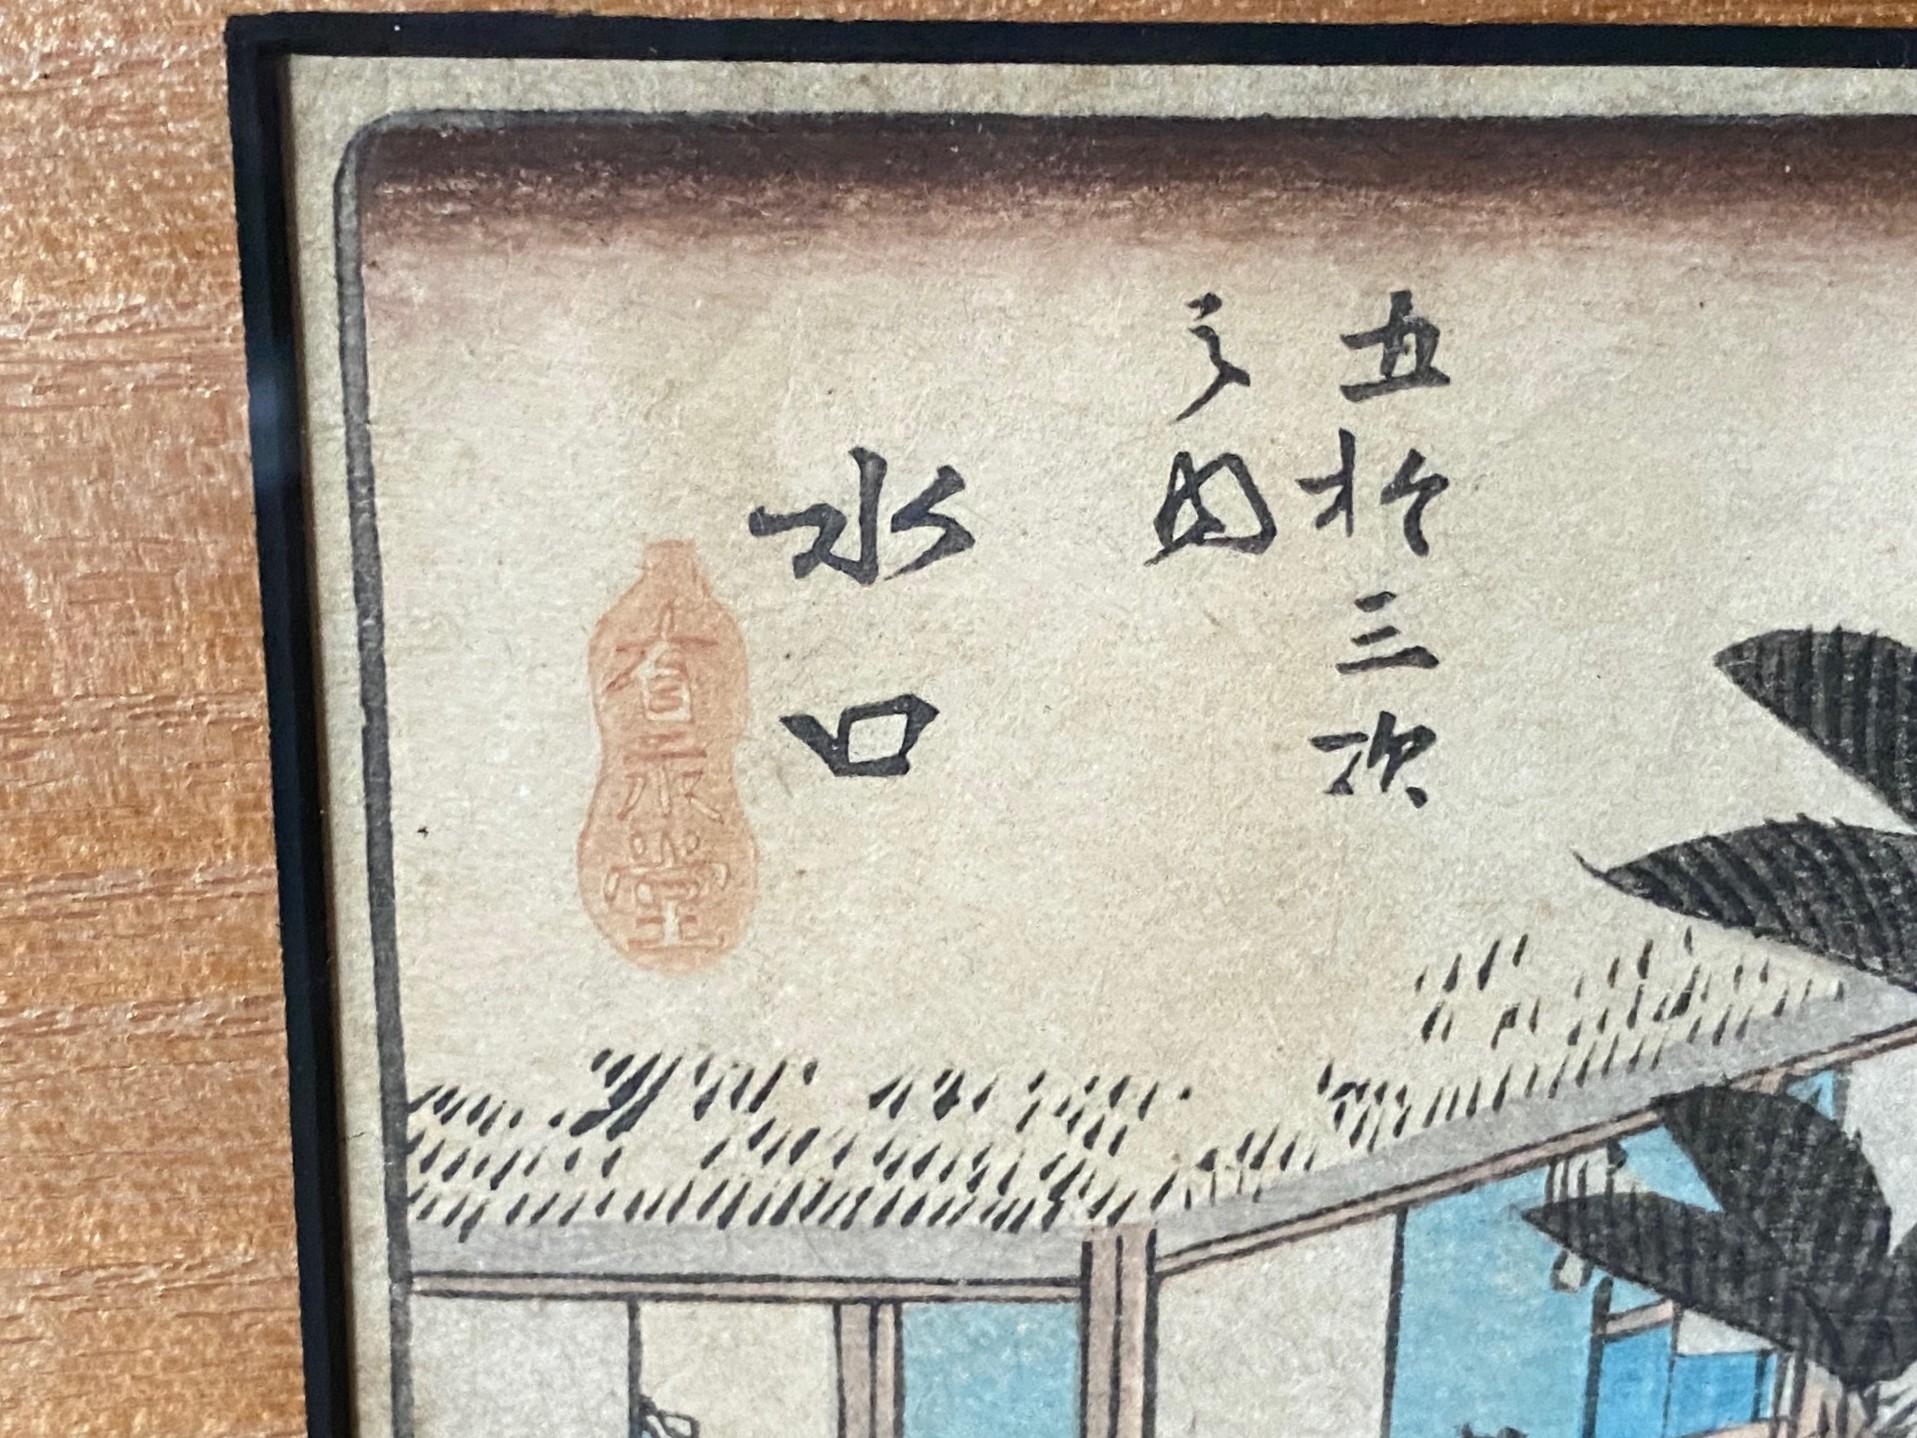 五拾三次
之内
水口
有永堂